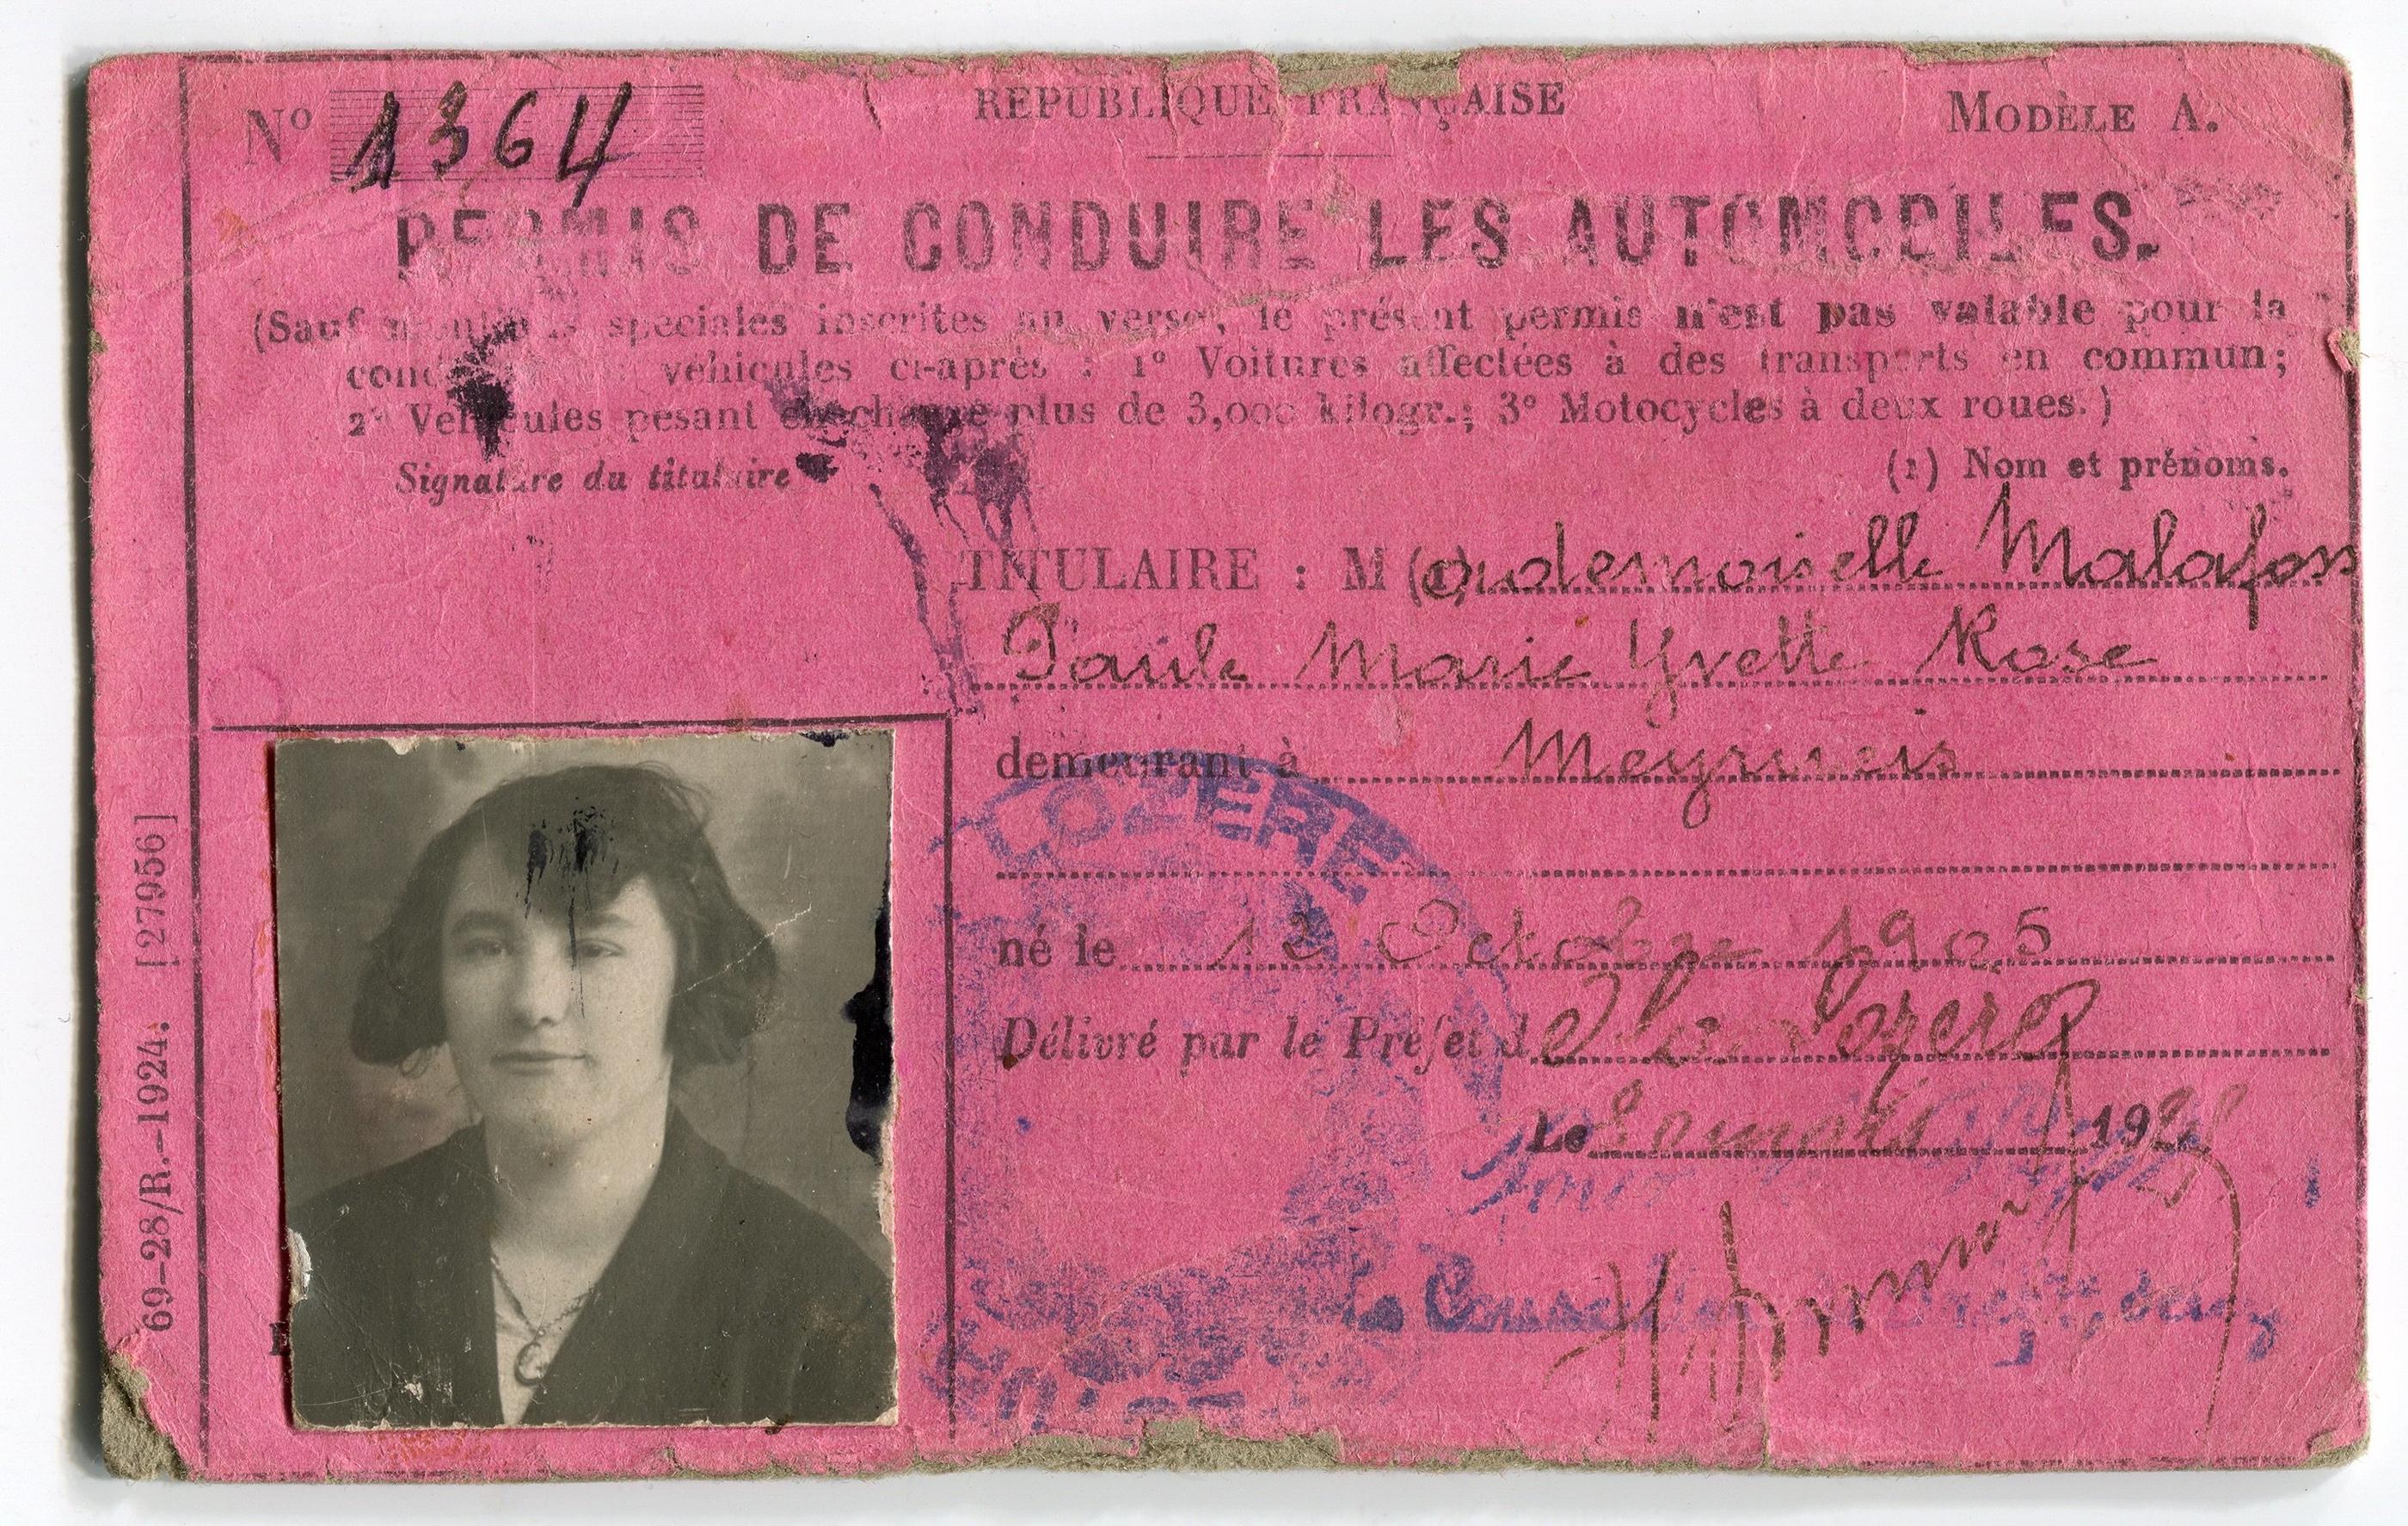 N° 1364
RÉPUBLIQUE FRANÇAISE
MODÈLE A.
PERMIS DE CONDUIRE LES AUTOMOBILES.
(Sauf mentions spéciales inscrites au verso, le présent permis n'est pas valable pour la
véhicules ci-après : 1° Voitures affectées à des transports en commun;
2° Véhicules pesant en charge plus de 3,000 kilogr.; 3° Motocycles à deux roues.)
Signature du titulaire
(1) Nom et prénoms.
TITULAIRE : M (1) ademoiselle Malafoss
Paule Marie Yvette Rose
demeurant à Meyrueis
LOZÈRE
né le 12 Octobre 1905
Délivré par le Préfet de la Lozère
Le 192
Le Conseiller de Préfecture
69-28/R.-1924. [27956]